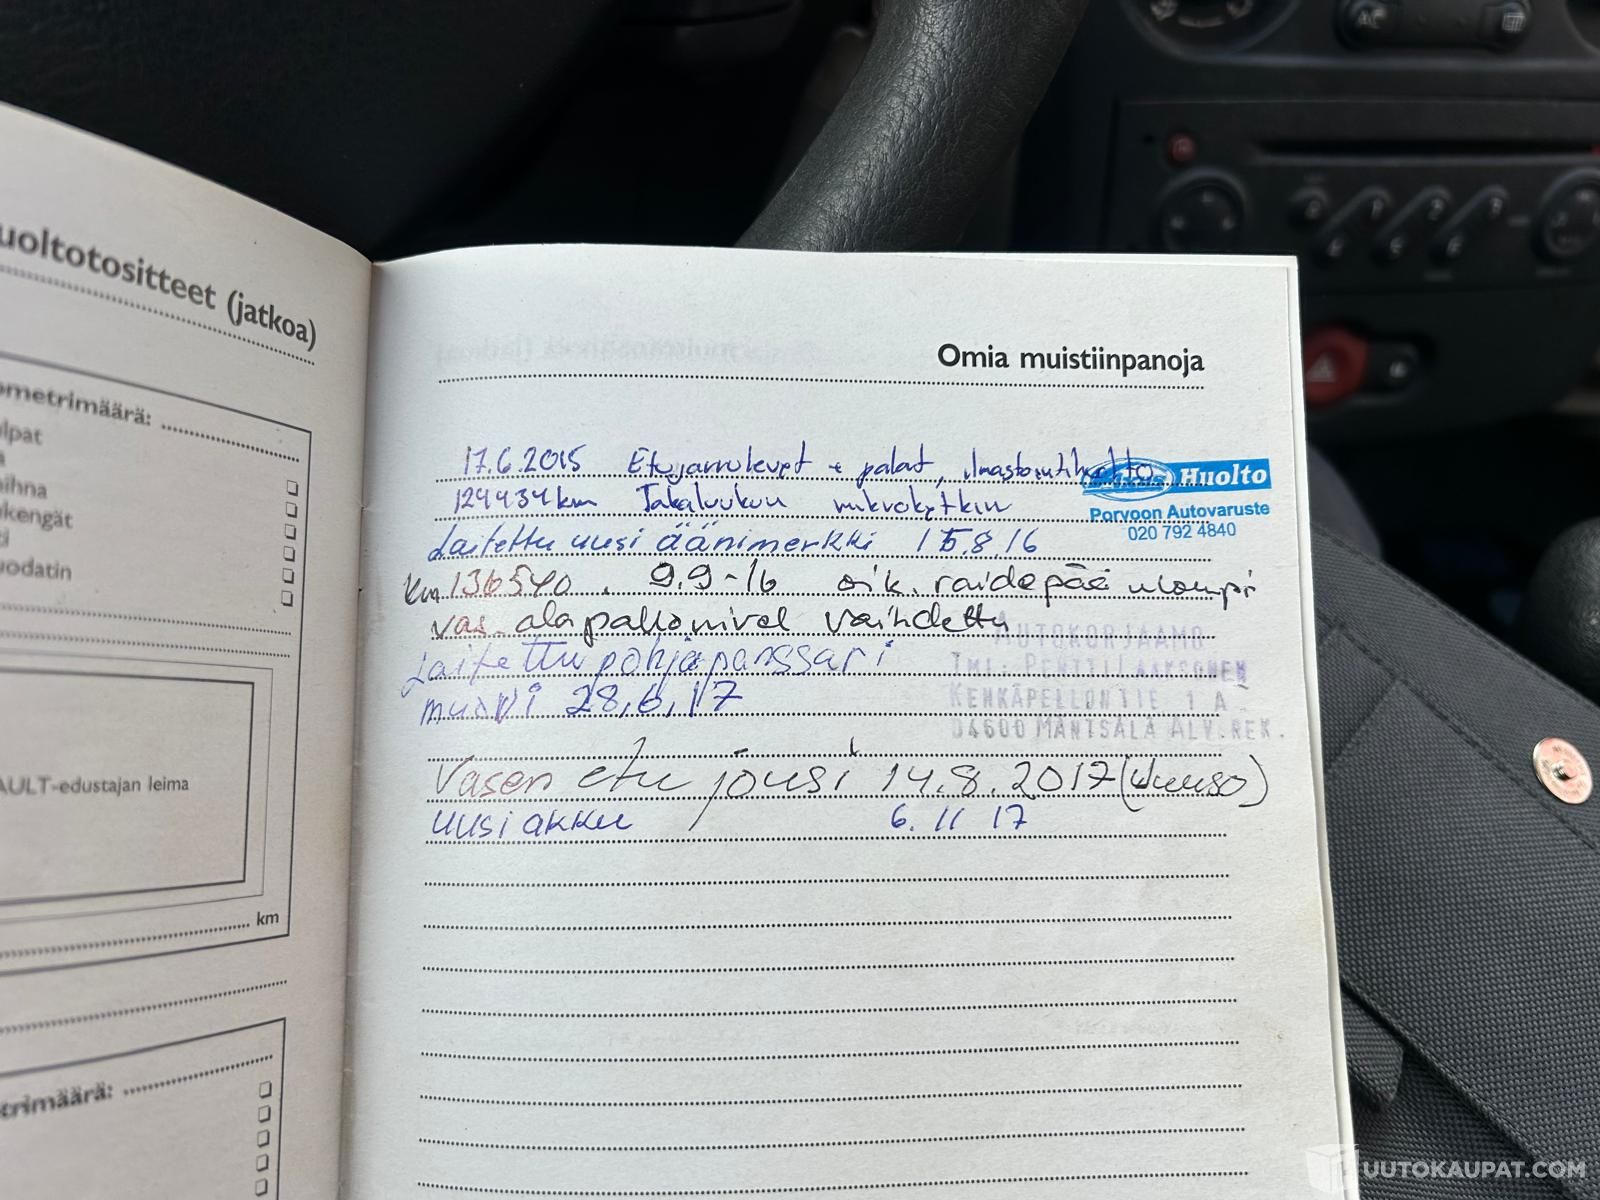 uoltotositteet (jatkoa)
ometrimäärä:
lpat
a
aihna
kengät
i
uodatin
AULT-edustajan leima
km
etrimäärä:
Omia muistiinpanoja
17.6.2015 Etujarrulevyt + palat, ilmastointihuolto
129434km Takaluukun mikrokytkin
Huolto
Porvoon Autovaruste
020 792 4840
Laitettu uusi äänimerkki 15.8.16
km 136540. 9.9-16 oik. raidepää ulompi
vas. alapallonivel vaihdettu
AUTOKORJAAMO
Laitettu pohjapanssari
TMI: PENTTI LAAKSONEN
muovi 28.6.17
KENKÄPELLONTIE 1 A
04600 MÄNTSÄLÄ ALV.REK.
Vasen etu jousi 14.8.2017
uusi akku 6.11 17
AC
1 2 3
4 5 6
UUTOKAUPAT.COM